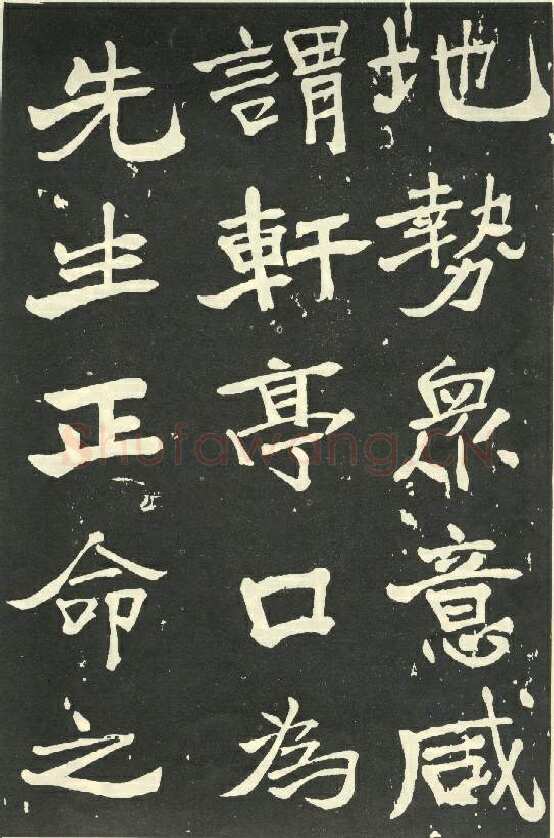 地勢衆意咸
謂軒亭口為
先生正命之
Shufawang.CN